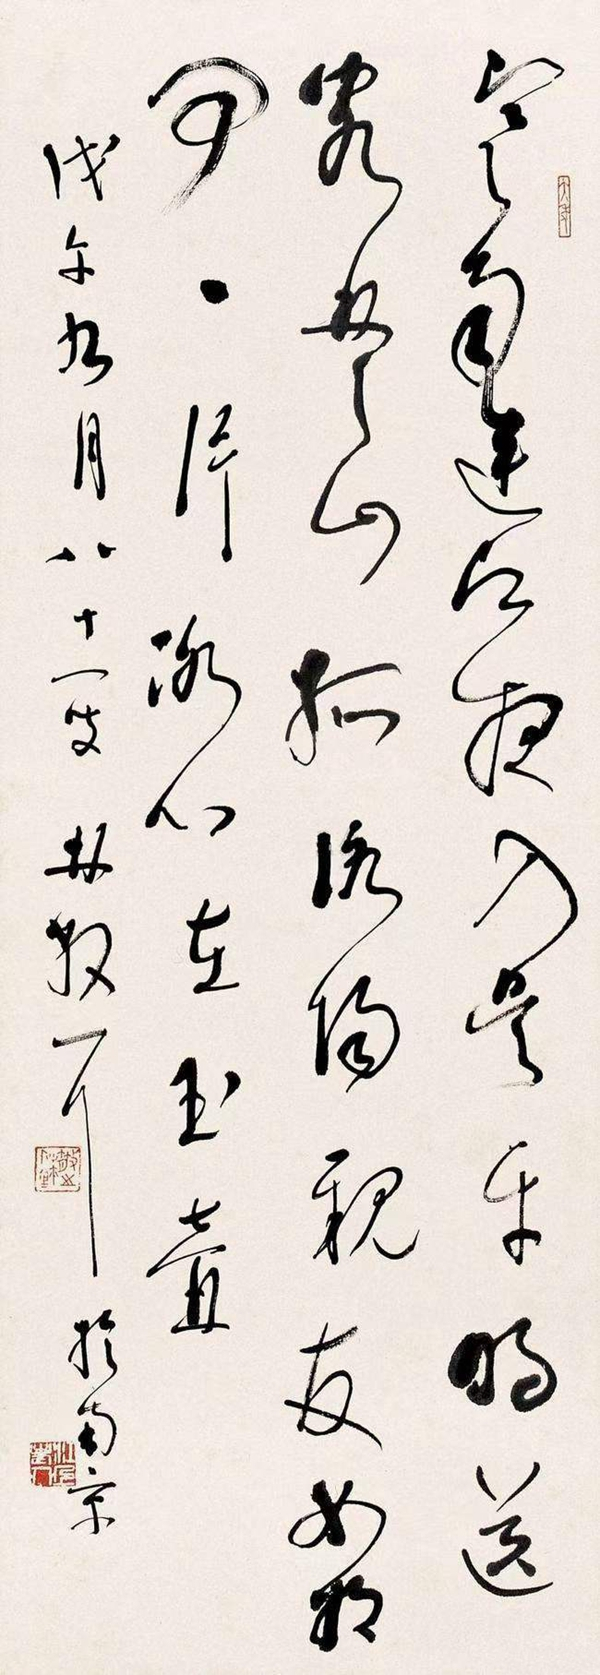 寒雨連江夜入吳平明送
客楚山孤洛陽親友如相
問一片冰心在玉壺
戊午九月八十一叟林散耳於南京